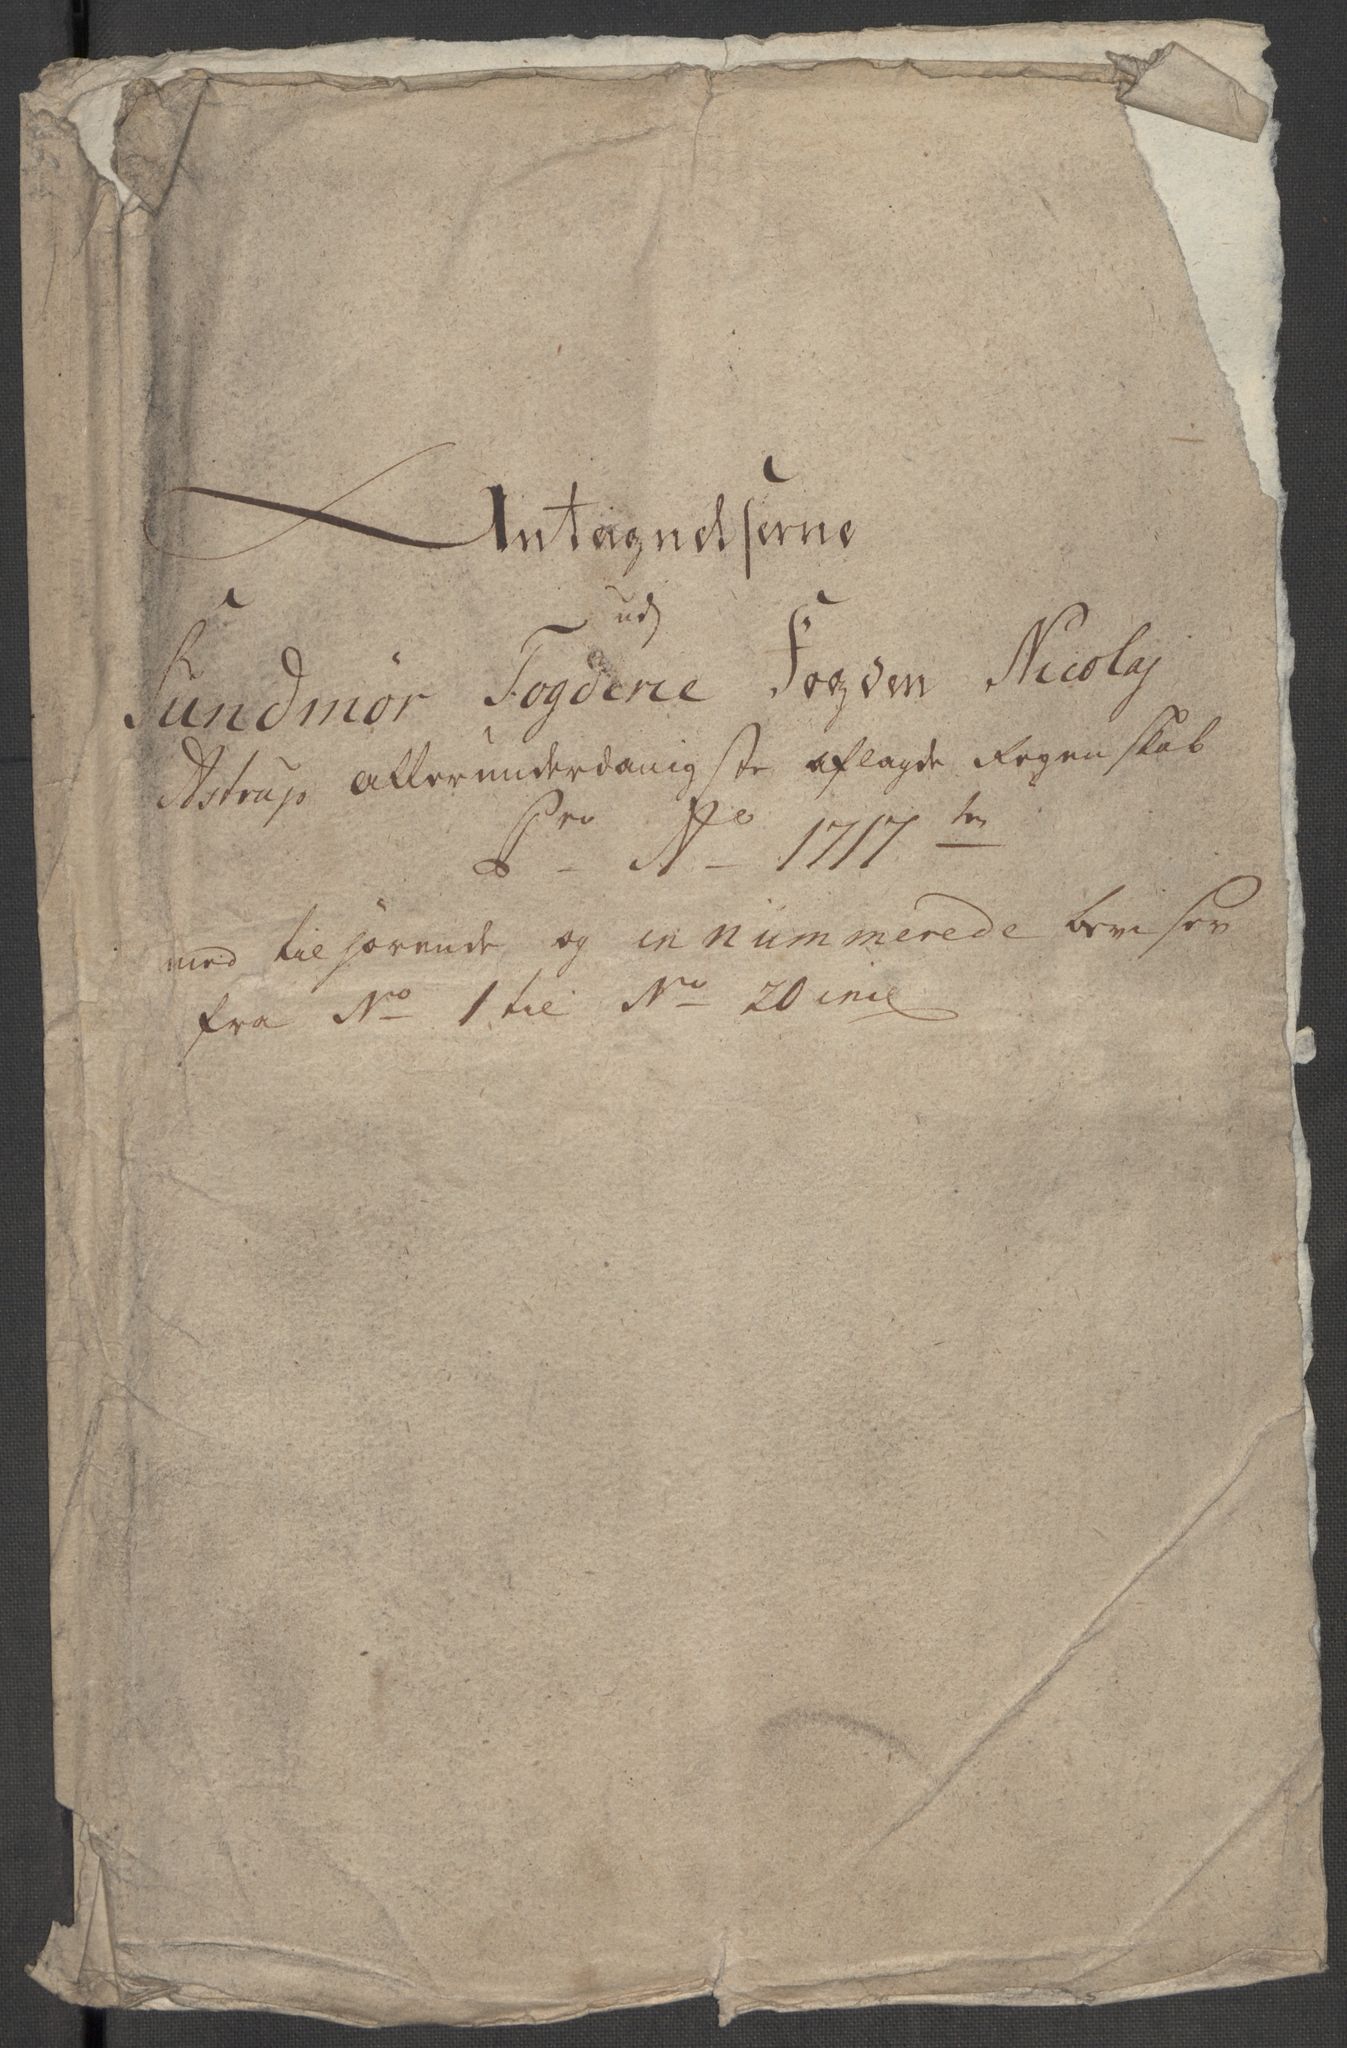 Antegnelserne
ud
Sundmør Fogderie Fogden Nicolaj
Astrup allerunderdanigste aflagde Regenskab
Pro Ao 1717ten
med tilhørende og innummerede beviser
fra No 1 til No 20 incl